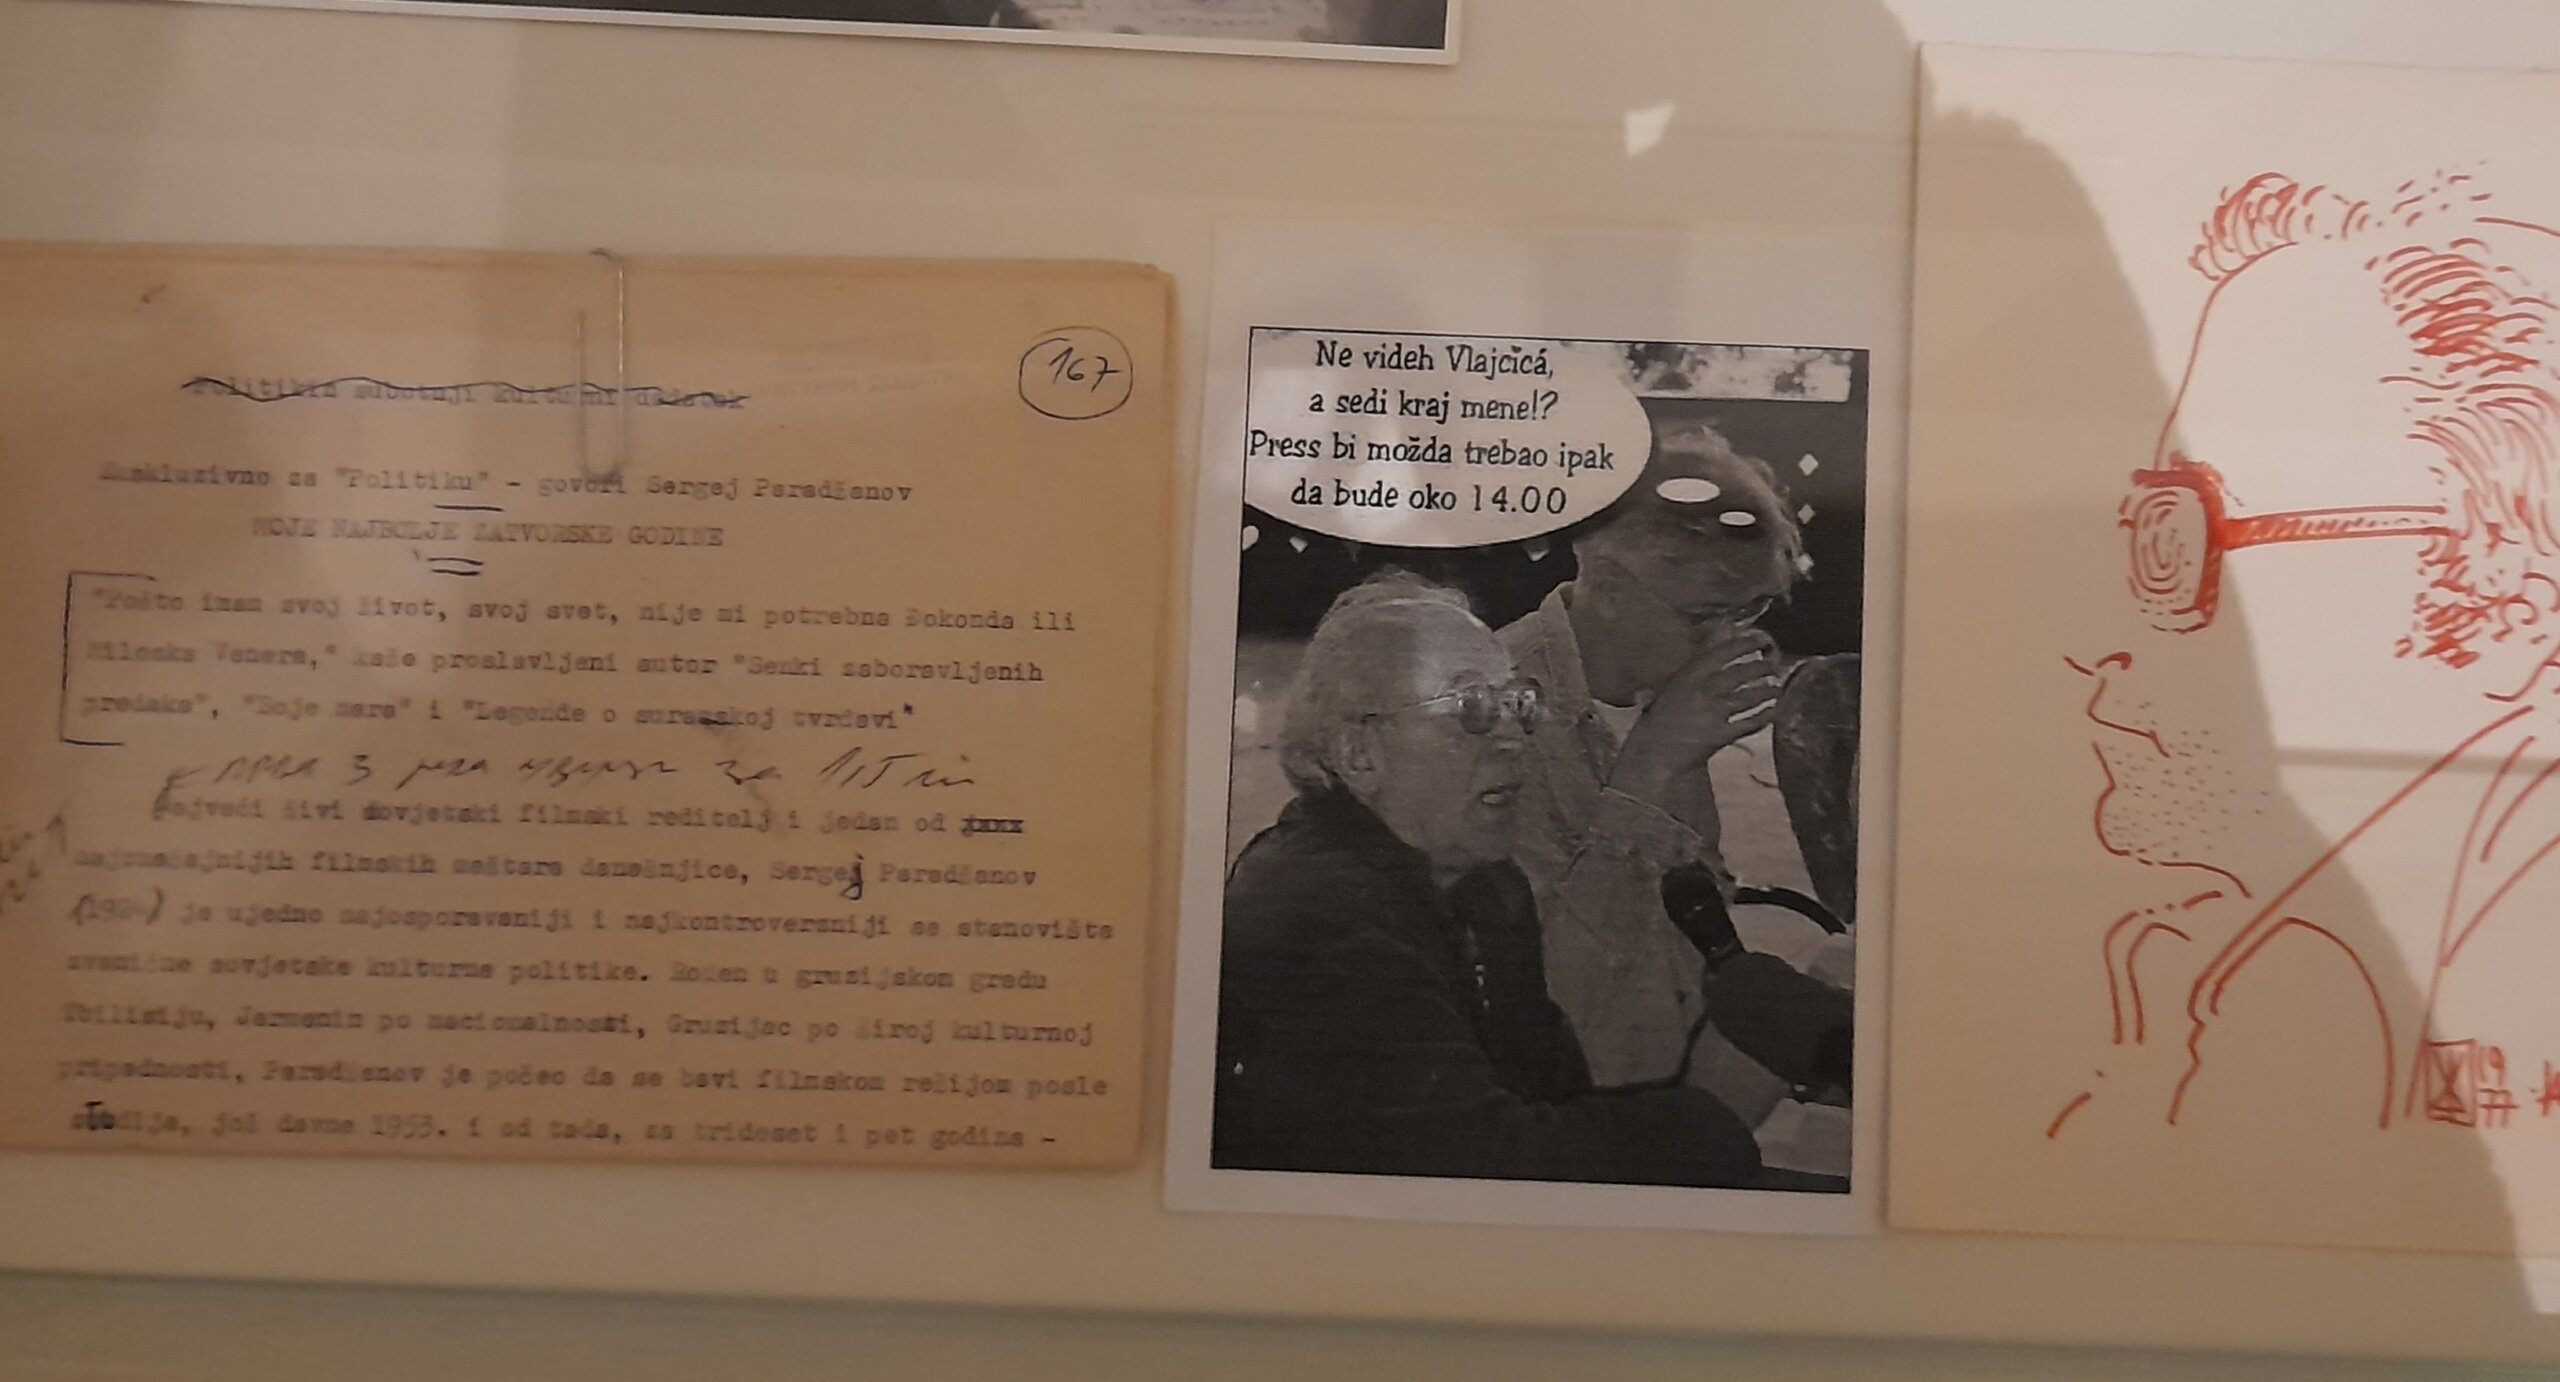 Politikin subotnji kulturni dodatak
167
Ekskluzivno za "Politiku" - govori Sergej Paradžanov
MOJE NAJBOLJE ZATVORSKE GODINE
"Pošto imam svoj život, svoj svet, nije mi potrebna Đokonda ili
Miloska Venera," kaže proslavljeni autor "Senki zaboravljenih
predaka", "Boje nara" i "Legende o suramskoj tvrđavi"
Najveći živi sovjetski filmski reditelj i jedan od
najznačajnijih filmskih maštara današnjice, Sergej Paradžanov
(1924) je ujedno najosporavaniji i najkontroverzniji sa stanovišta
zvanične sovjetske kulturne politike. Rođen u gruzijskom gradu
Tbilisiju, Jermenin po nacionalnosti, Gruzijac po široj kulturnoj
pripadnosti, Paradžanov je počeo da se bavi filmskom režijom posle
studija, još davne 1953. i od tada, za trideset i pet godina -
Ne videh Vlajčića,
a sedi kraj mene!?
Press bi možda trebao ipak
da bude oko 14.00
19
77